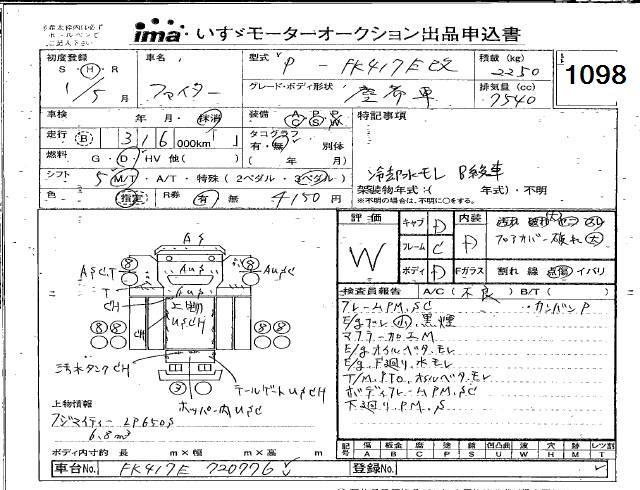 ima いすゞモーターオークション出品申込書
※在太枠内は必ず
ボールペンで
ご記入下さい
初度登録
S・H・R
1/5月
車名
ファイター
型式
P - FK417E改
グレード・ボディ形状
塵芥車
積載 (kg)
2250
排気量 (cc)
7540
1098
車検 年 月・抹消
装備
走行 B 316 000km
タコグラフ
有・無 別体
( 年 月)
燃料 G・D・HV 他( )
シフト 5 M/T・A/T・特殊(2ペダル・3ペダル)
色 指定 R券 有 無 4150円
特記事項
冷却水モレ B級車
架装物年式:( 年式)・不明
※不明の場合は、不明に○をする。
評価
W
キャブ D
フレーム C
ボディ D
内装 D
フロアカバー破れ 大
Fガラス 割れ 線 点傷 イバリ
検査員報告 A/C(不良) B/T( )
フレームPM.SC カンバンP
E/gブレ 小 黒煙
マフラー加工M
E/gオイルベタ.モレ
E/g.下廻り.水モレ
T/M.PTO.オイルベタ.モレ
ボディフレームPM.SC
下廻り.P.M.S
A S
A S C T
A u S
A u S C
T
CH
上部
u S C H
CH
汚水タンクCH
テールゲートuSCH
ホッパー内uSC
上物情報
フジマイティー LP650S
6.8m³
ボディ内寸約 長 m×幅 m×高 m
記号 傷 板金 腐 塗 錆 凹凸曲 波 穴 跡 レツ割
A B C P S U W H M T
車台No. FK417E 720776
登録No.